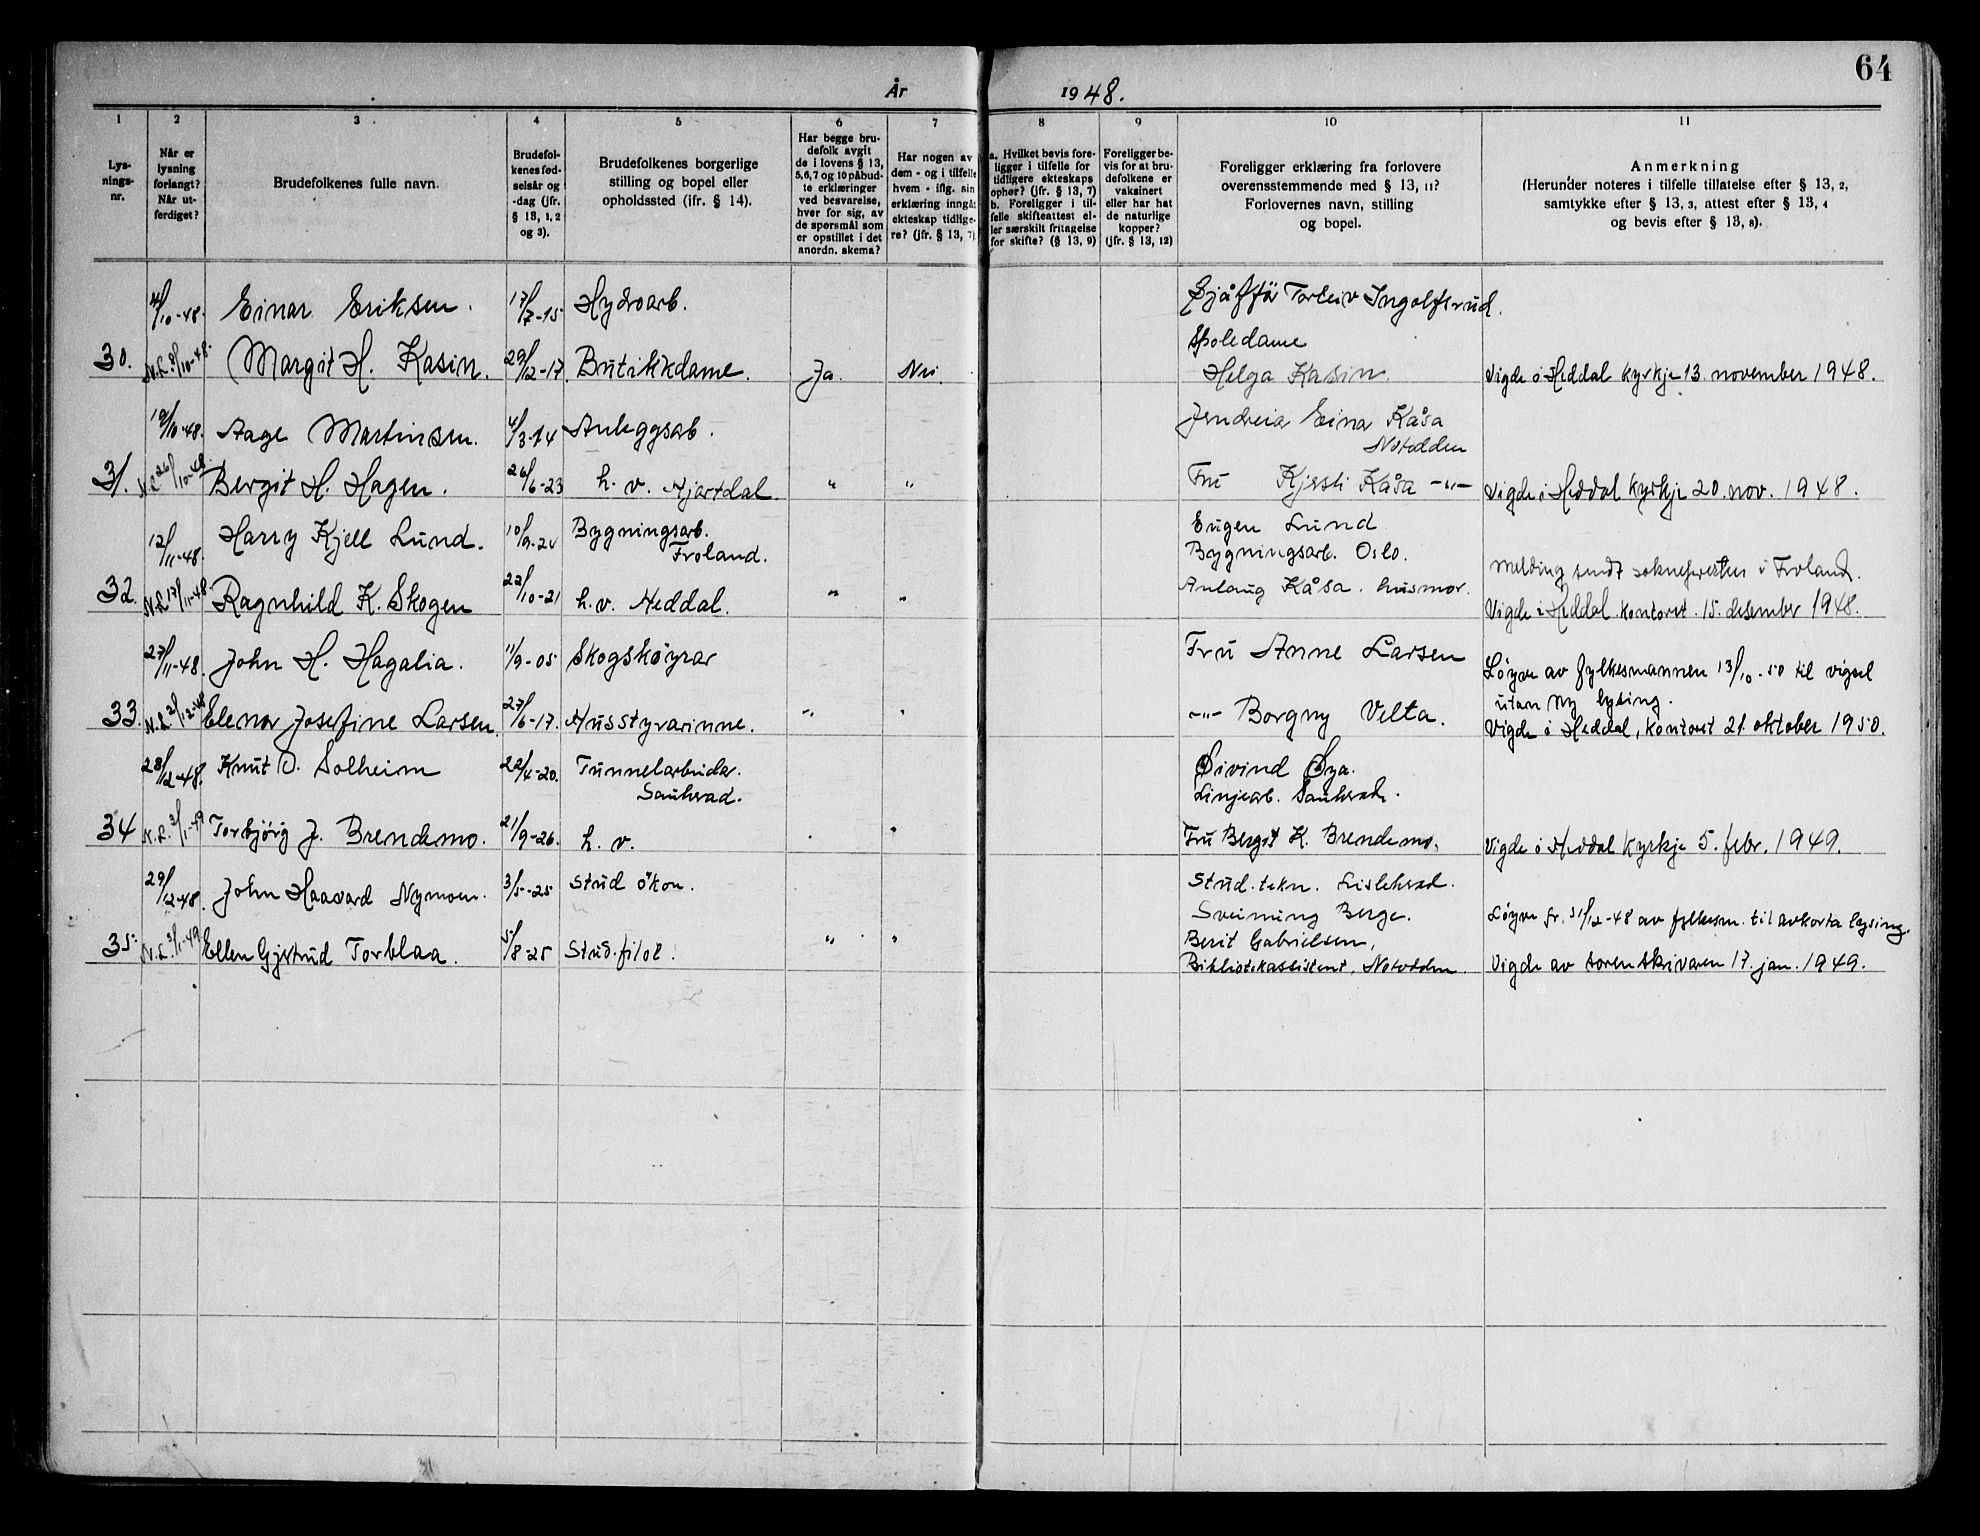 64
År 1948.
1 2 3 4 5 6 7 8 9 10 11
Lys-
nings-
nr.
Når er
lysning
forlangt?
Når ut-
ferdiget?
Brudefolkenes fulle navn.
Brudefol-
kenes fød-
selsår og
-dag (jfr.
§ 13, 1, 2
og 3).
Brudefolkenes borgerlige
stilling og bopel eller
opholdssted (ifr. § 14).
Har begge bru-
defolk avgit
de i lovens § 13,
5, 6, 7 og 10 påbud-
te erklæringer
ved besvarelse,
hver for sig, av
de spørsmål som
er opstillet i det
anordn. skema?
Har nogen av
dem - og i tilfelle
hvem - iflg. sin
erklæring inngåt
ekteskap tidlige-
re? (jfr. § 13, 7)
a. Hvilket bevis fore-
ligger i tilfelle for
tidligere ekteskaps
ophør? (jfr. § 13, 7)
b. Foreligger i til-
felle skifteattest el-
ler særskilt fritagelse
for skifte? (§ 13, 9)
Foreligger be-
vis for at bru-
defolkene er
vaksinert
eller har hat
de naturlige
kopper?
(jfr. § 13, 12)
Foreligger erklæring fra forlovere
overensstemmende med § 13, 11?
Forlovernes navn, stilling
og bopel.
Anmerkning
(Herunder noteres i tilfelle tillatelse efter § 13, 2,
samtykke efter § 13, 3, attest efter § 13, 4
og bevis efter § 13, 8).
4/10-48. Einar Eriksen. 17/7-15 Hydroarb. Sjåffør Torleiv Ingolfsrud.
Spoledame
30. N.L. 8/10-48. Margit H. Kasin. 29/12-17. Butikkdame. Ja. Nei. Helga Kasin Vigde i Heddal kyrkje 13. november 1948.
19/10-48. Aage Martinsen. 4/3-14 Anleggsarb. Einar Kåsa
Notodden
31. N.L. 26/10-48. Bergit H. Hagen. 26/6-23 h. v. Hjartdal. " " Fru Kjersti Kåsa -"- Vigde i Heddal kyrkje 20. nov. 1948.
12/11-48. Harry Kjell Lund. 10/9-24 Bygningsarb.
Froland. Eugen Lund
Bygningsarb. Oslo. Melding sendt soknepresten i Froland.
32. N.L. 17/11-48 Ragnhild K. Skogen 22/10-21 h. v. Heddal. " " Anlaug Kåsa. husmor. Vigde i Heddal kontoret. 15. desember 1948.
27/11-48. John H. Hagalia. 11/9-05 Skogskøyrar Fru Anne Larsen Løyve av fylkesmannen 13/10-50 til vigsel
utan ny lysing.
33. N.L. 2/12-48 Elenor Josefine Larsen. 27/6-17. Husstyrarinne. " " -"- Borgny Velta. Vigde i Heddal, kontoret 21. oktober 1950.
28/12-48. Knut O. Solheim 22/4-20. Tunnelarbeidar.
Sauherad. Øivind Øya.
Linjearb. Sauherad.
34 N.L. 3/1-49 Torbjørg J. Brendemo. 21/9-26. h. v. " Fru Bergit K. Brendemo. Vigde i Heddal kyrkje 5. febr. 1949.
29/12-48. John Haavard Nymoen. 3/5-25 Stud økon. Stud. tekn. Lisleherad.
Sveinung Berge. Løyve fr. 31/12-48 av fylkesm. til avkorta lysing.
35. N.L. 3/1-49 Ellen Gjertrud Torblaa. 5/8-25 Stud. filol. " " Berit Gabrielsen,
Bibliotekassistent, Notodden. Vigde av sorenskrivaren 17. jan. 1949.